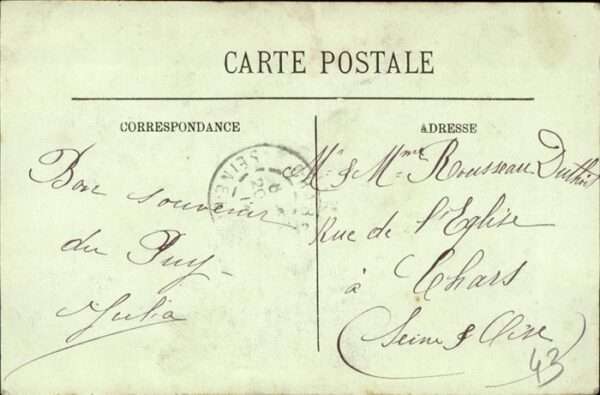 CARTE POSTALE
CORRESPONDANCE
Bon souvenir
du Puy-
Julia
ADRESSE
Mr & Mme Rousseau
Rue de l'Eglise
à Chars
(Seine & Oise
43
SEINE